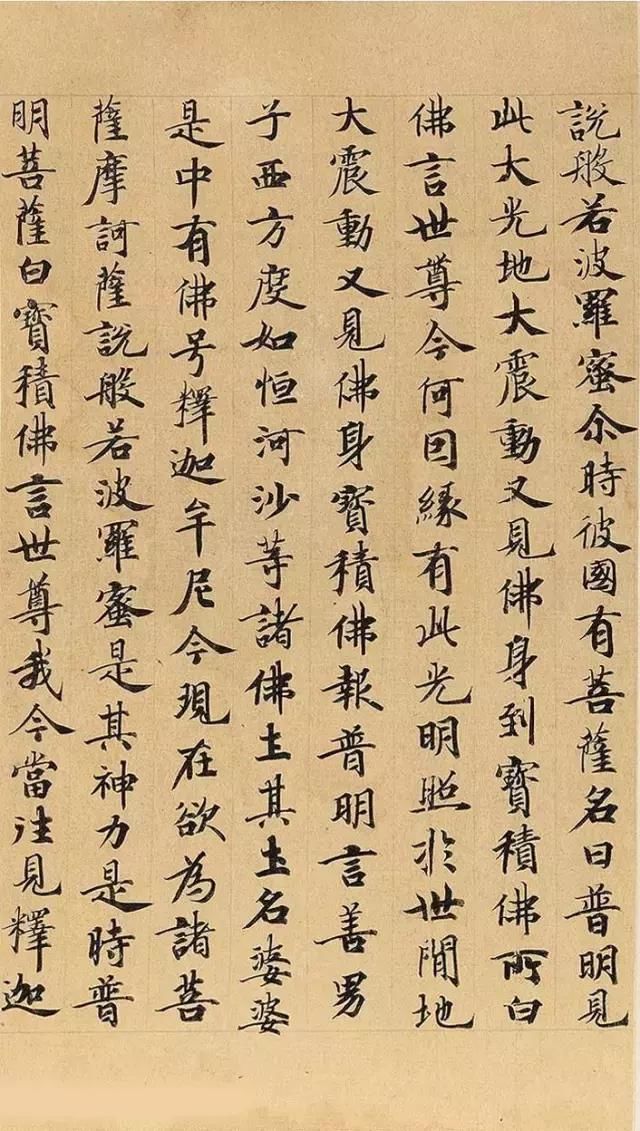 說般若波羅蜜尒時彼國有菩薩名曰普明見
此大光地大震動又見佛身到寶積佛所白
佛言世尊今何因緣有此光明照於世間地
大震動又見佛身寶積佛報普明言善男
子西方度如恒河沙等諸佛土其土名娑婆
是中有佛号釋迦牟尼今現在欲為諸菩
薩摩訶薩說般若波羅蜜是其神力是時普
明菩薩白寶積佛言世尊我今當往見釋迦